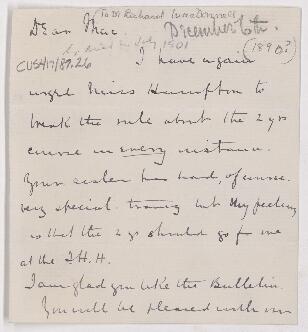 (To Dr Richard MacDonnell
Dear Mac. December 6th.
he died in July, 1901 (1890?)
CUS417/87.26
I have again
urged Miss Hampton to
break the rule about the 2 yrs
course in every instance.
Your sister has had, of course,
very special training but my feeling
is that the 2 yrs should go for me
at the J.H.H.
I am glad you like the Bulletin.
You will be pleased with our